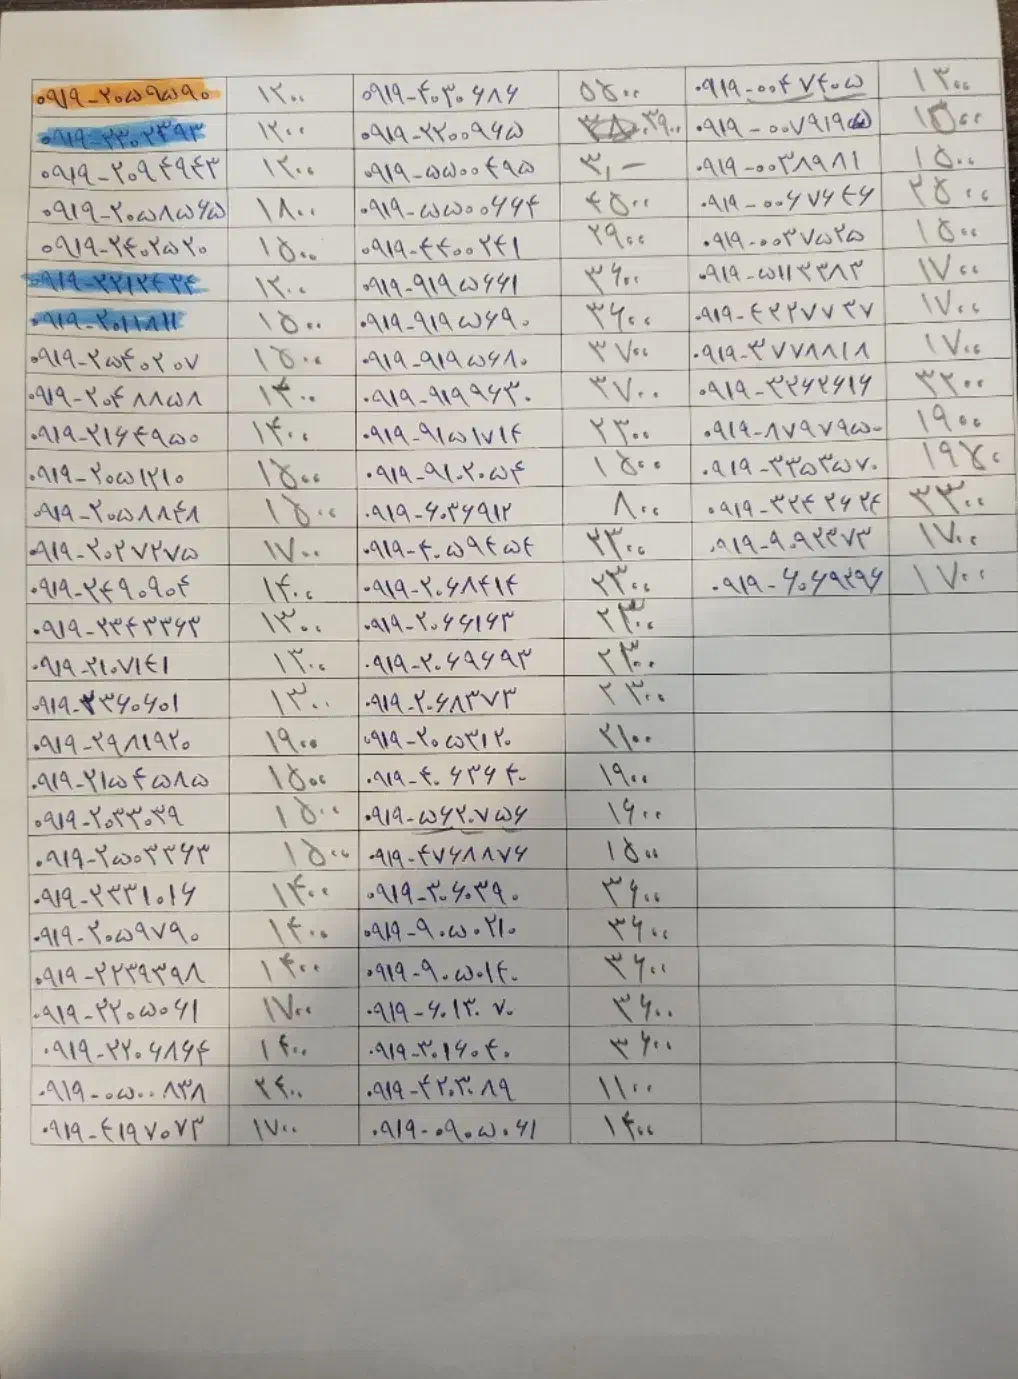 ۰۹۱۹-۲۰۵۹۵۹۰ ۱۲۰۰ ۰۹۱۹-۴۰۳۰۶۸۶ ۵۵۰۰ ۰۹۱۹-۰۰۴۷۴۰۵ ۱۳۰۰
۰۹۱۹-۲۳۰۲۳۹۳ ۱۲۰۰ ۰۹۱۹-۲۲۰۰۹۶۵ ۲۹۰۰ ۰۹۱۹-۰۰۷۹۱۹۵ ۱۵۰۰
۰۹۱۹-۲۰۹۴۹۴۳ ۱۲۰۰ ۰۹۱۹-۵۵۰۰۴۹۵ ۳,- ۰۹۱۹-۰۰۳۸۹۸۱ ۱۵۰۰
۰۹۱۹-۲۰۵۸۵۶۵ ۱۸۰۰ ۰۹۱۹-۵۵۰۰۶۶۴ ۴۵۰۰ ۰۹۱۹-۰۰۶۷۶۴۶ ۲۵۰۰
۰۹۱۹-۲۴۰۲۵۲۰ ۱۵۰۰ ۰۹۱۹-۴۴۰۰۲۴۱ ۲۹۰۰ ۰۹۱۹-۰۰۳۷۵۲۵ ۱۵۰۰
۰۹۱۹-۲۲۱۲۴۳۴ ۱۲۰۰ ۰۹۱۹-۹۱۹۵۶۶۱ ۳۶۰۰ ۰۹۱۹-۵۱۱۳۳۸۳ ۱۷۰۰
۰۹۱۹-۲۰۱۱۸۱۱ ۱۵۰۰ ۰۹۱۹-۹۱۹۵۶۹۰ ۳۶۰۰ ۰۹۱۹-۴۲۲۷۷۳۷ ۱۷۰۰
۰۹۱۹-۲۵۴۰۲۰۷ ۱۵۰۰ ۰۹۱۹-۹۱۹۵۶۸۰ ۳۷۰۰ ۰۹۱۹-۳۷۷۸۸۱۸ ۱۷۰۰
۰۹۱۹-۲۰۴۸۸۵۸ ۱۴۰۰ ۰۹۱۹-۹۱۹۹۶۳۰ ۳۷۰۰ ۰۹۱۹-۳۲۶۲۶۱۶ ۳۲۰۰
۰۹۱۹-۲۱۶۴۹۵۰ ۱۴۰۰ ۰۹۱۹-۹۱۵۱۷۱۴ ۲۳۰۰ ۰۹۱۹-۸۷۹۷۹۵۰ ۱۹۰۰
۰۹۱۹-۲۰۵۱۲۱۰ ۱۵۰۰ ۰۹۱۹-۹۱۰۲۰۵۴ ۱۵۰۰ ۰۹۱۹-۳۳۵۳۵۷۰ ۱۹۵۰
۰۹۱۹-۲۰۵۸۸۴۸ ۱۵۰۰ ۰۹۱۹-۶۰۳۶۹۱۲ ۸۰۰ ۰۹۱۹-۳۲۴۲۶۲۴ ۳۳۰۰
۰۹۱۹-۲۰۲۷۲۷۵ ۱۷۰۰ ۰۹۱۹-۴۰۵۹۴۵۴ ۲۳۰۰ ۰۹۱۹-۹۰۹۲۳۷۳ ۱۷۰۰
۰۹۱۹-۲۴۹۰۹۰۴ ۱۴۰۰ ۰۹۱۹-۲۰۶۸۴۱۴ ۲۳۰۰ ۰۹۱۹-۶۰۶۹۲۹۶ ۱۷۰۰
۰۹۱۹-۲۳۴۳۳۶۳ ۱۳۰۰ ۰۹۱۹-۲۰۶۶۱۶۳ ۲۳۰۰
۰۹۱۹-۲۱۰۷۱۴۱ ۱۳۰۰ ۰۹۱۹-۲۰۶۹۶۹۳ ۲۳۰۰
۰۹۱۹-۲۳۶۰۶۰۱ ۱۳۰۰ ۰۹۱۹-۲۰۶۸۳۷۳ ۲۳۰۰
۰۹۱۹-۲۹۸۱۹۲۰ ۱۹۰۰ ۰۹۱۹-۲۰۵۳۱۲۰ ۲۱۰۰
۰۹۱۹-۲۱۵۴۵۸۵ ۱۵۰۰ ۰۹۱۹-۴۰۶۳۶۴۰ ۱۹۰۰
۰۹۱۹-۲۰۳۳۰۳۹ ۱۵۰۰ ۰۹۱۹-۵۶۲۰۷۵۶ ۱۶۰۰
۰۹۱۹-۲۵۰۳۳۶۳ ۱۵۰۰ ۰۹۱۹-۴۷۶۸۸۷۶ ۱۵۰۰
۰۹۱۹-۲۳۳۱۰۱۶ ۱۴۰۰ ۰۹۱۹-۳۰۶۰۳۹۰ ۳۶۰۰
۰۹۱۹-۲۰۵۹۷۹۰ ۱۴۰۰ ۰۹۱۹-۹۰۵۰۲۱۰ ۳۶۰۰
۰۹۱۹-۲۲۳۹۳۹۸ ۱۴۰۰ ۰۹۱۹-۹۰۵۰۱۴۰ ۳۶۰۰
۰۹۱۹-۲۲۰۵۰۶۱ ۱۷۰۰ ۰۹۱۹-۶۰۱۳۰۷۰ ۳۶۰۰
۰۹۱۹-۲۲۰۶۸۶۴ ۱۴۰۰ ۰۹۱۹-۳۰۱۶۰۴۰ ۳۶۰۰
۰۹۱۹-۰۵۰۰۸۳۸ ۲۴۰۰ ۰۹۱۹-۴۲۰۳۰۸۹ ۱۱۰۰
۰۹۱۹-۴۱۹۷۰۷۳ ۱۷۰۰ ۰۹۱۹-۰۹۰۵۰۶۱ ۱۴۰۰